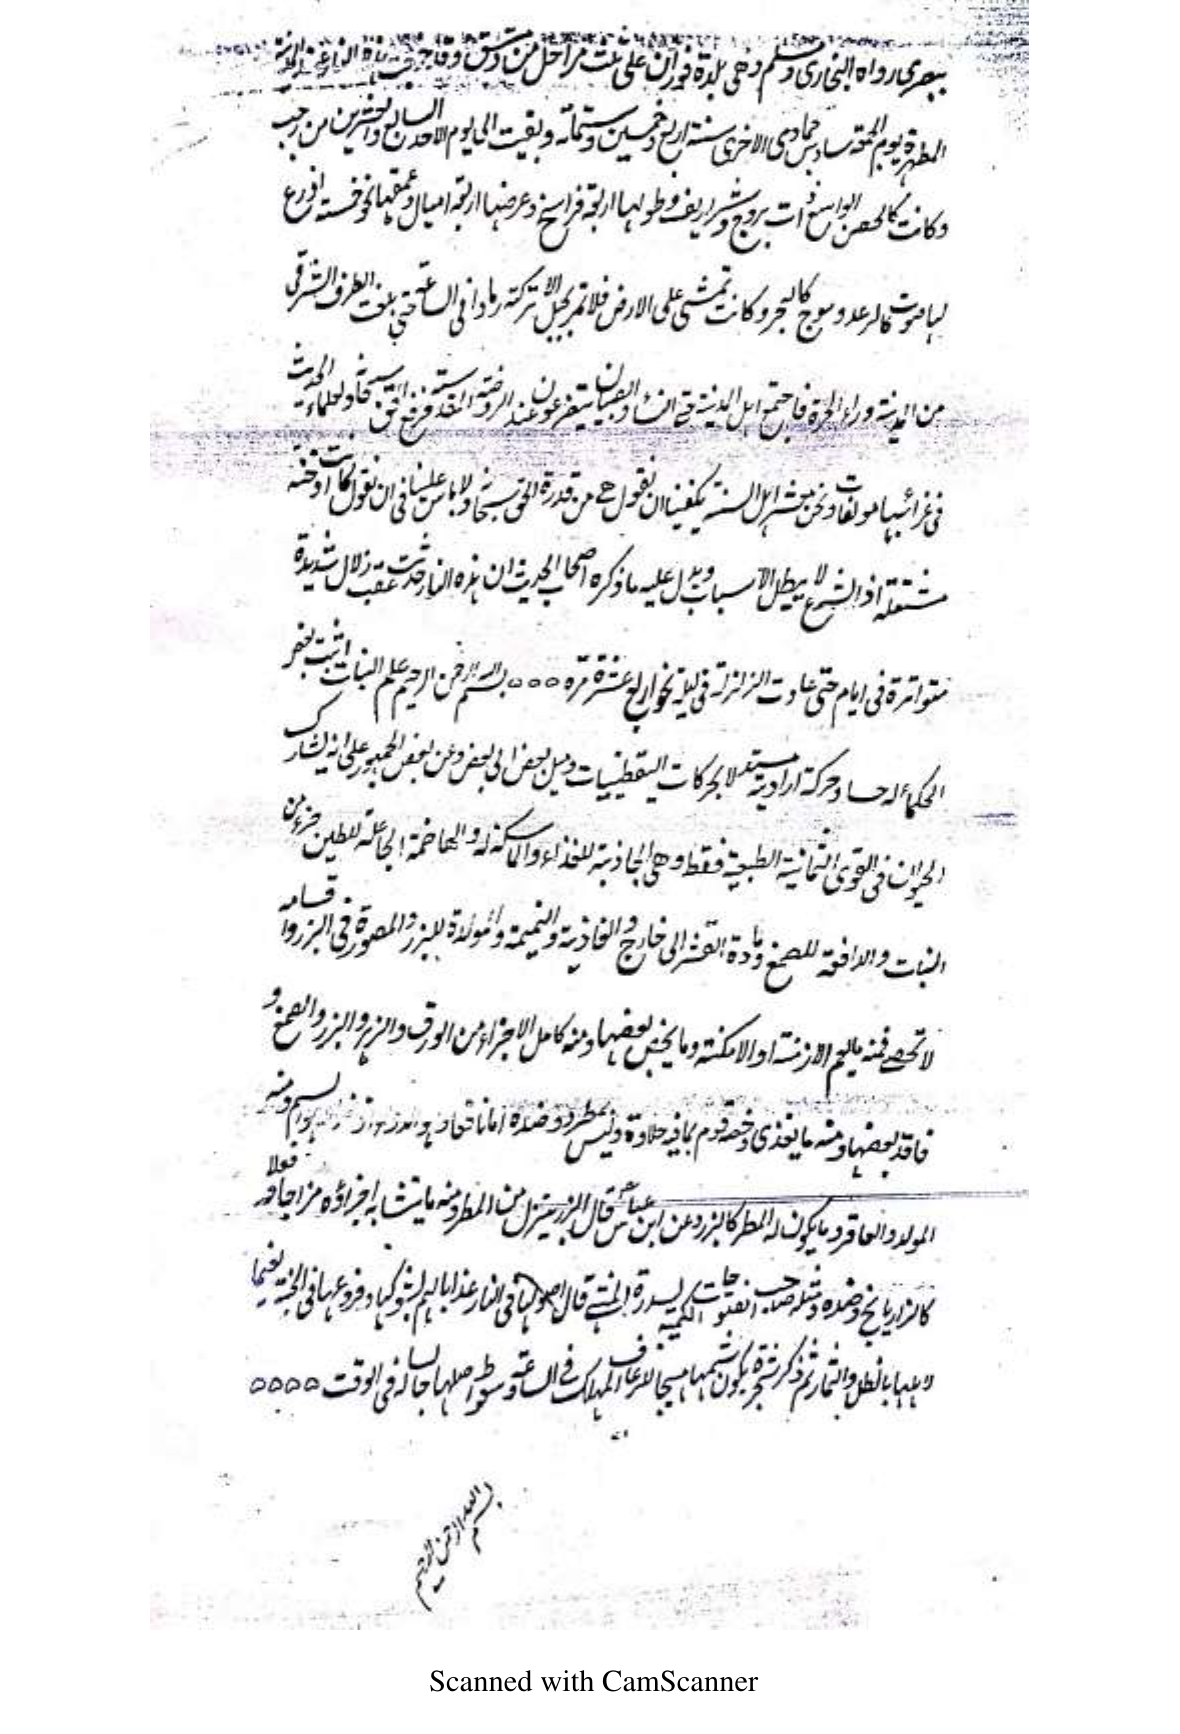 ببصرى رواه البخارى ومسلم وهى بلدة حوران على ثلث مراحل من دمشق وقد خرجت هذه النار عند المدينة
المطهرة يوم الجمعة سادس جمادى الاخرى سنة اربع وخمسين وستمائة وبقيت الى يوم الاحد السابع والعشرين من رجب
وكانت كالحصن الواسع ذات بروج وشراريف وطولها اربعة فراسخ وعرضها اربعة اميال وعمقها نحو خمسة اذرع
لها صوت كالرعد وموج كالبحر وكانت تمشى على الارض فلا تمر بجبل الا تركته رمادا فى الساعة حتى بلغت الطرف الشرقى
من المدينة وراء الحرة فاجتمع اهل المدينة حتى النساء والصبيان يتضرعون عند الروضة المقدسة فرفع الحق سبحانه ولعلماء الحديث
فى غرائبها مؤلفات ونحن معشر اهل السنة يكفينا ان نقول هى من قدرة الحق سبحانه ولا باس علينا فى ان نقول كانت ادخنة
مشتعلة اذ الشرع لا يبطل الاسباب ويدل عليه ما ذكره اصحاب الحديث ان هذه النار حدثت عقب زلازل شديدة
متواترة فى ايام حتى عادت الزلزلة فى ليلة نحو اربع عشرة مرة ٥٥٥ بسم الله الرحمن الرحيم علم النبات اثبت بعض
الحكماء له حسا وحركة ارادية مستدلا بحركات اليقطينيات وميل بعض الى بعض وعن بعض الجمهور على انه يشارك
الحيوان فى القوى الثمانية الطبعية فقط وهى الجاذبة للغذاء والماسكة له والهاضمة الجاعلة للطين جزء من
النبات والدافعة للصمغ ومادة القشر الى خارج والغاذية والنميمة والمولدة للبزر والمصورة فى البزر واقسامه
لا تحصى فمنه ما يعم الازمنة او الامكنة وما يخص بعضها ومنه كامل الاجزاء من الورق والزهر والبزر والصمغ و
فاقد بعضها ومنه ما يغذى وخصه قوم بما فيه حلاوة وليس بمطرد وضده اما نافعا دواء ومنه
المولد والعاقر وما يكون له المطر كالبزر وعن ابن عباس قال البزر ينزل من المطر ومنه ما يتشابه اجزاؤه مزاجا وفعلا
كالرازيانج وضده ومثله صاحب الفتوحات المكية بسدرة المنتهى قال اصولها فى النار عذابا لاهلها وفروعها فى الجنة نعيما
لاهلها بالظل والثمار ثم ذكر شجرة يكون شمها مهيجا للرعاف المهلك فى الساعة وسوط اصلها حابسا له فى الوقت ٥٥٥٥
بسم الله الرحمن الرحيم
Scanned with CamScanner